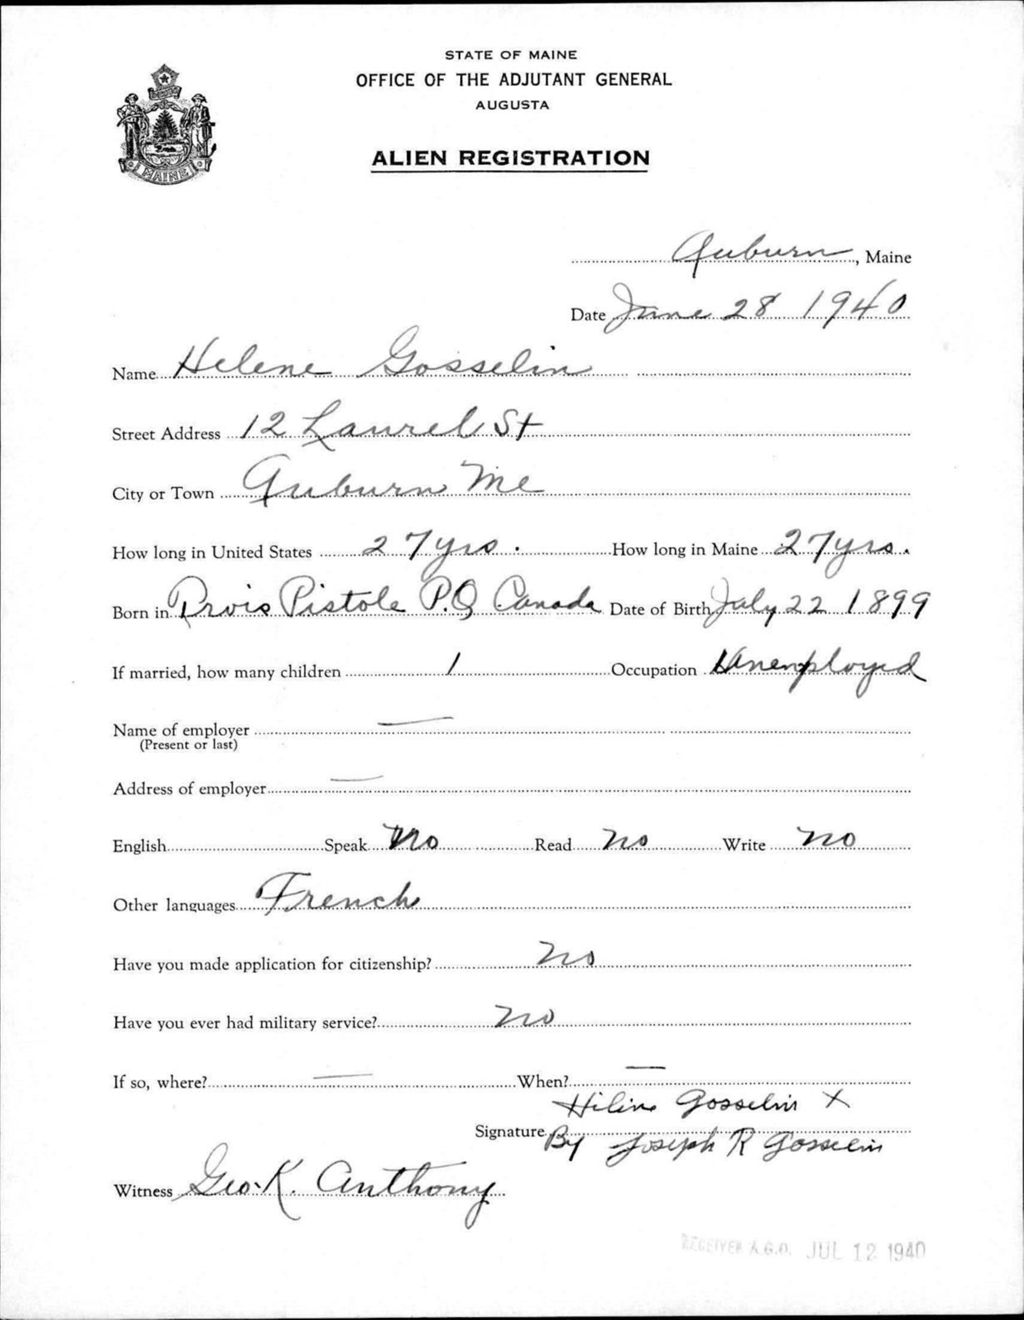 STATE OF MAINE
OFFICE OF THE ADJUTANT GENERAL
AUGUSTA
ALIEN REGISTRATION
MAINE
Auburn, Maine
Date June 28 1940
Name Helene Gosselin
Street Address 12 Laurel St
City or Town Auburn Me
How long in United States 27 yrs. How long in Maine 27 yrs.
Born in Pistole P.Q Canada Date of Birth July 22 1899
If married, how many children 1 Occupation Unemployed
Name of employer —
(Present or last)
Address of employer —
English Speak No Read No Write No
Other languages French
Have you made application for citizenship? No
Have you ever had military service? No
If so, where? — When? —
Hiline Gosselin X
Signature By Joseph R Gosselin
Witness Geo. K. Anthony
RECEIVED A.G.O. JUL 12 1940